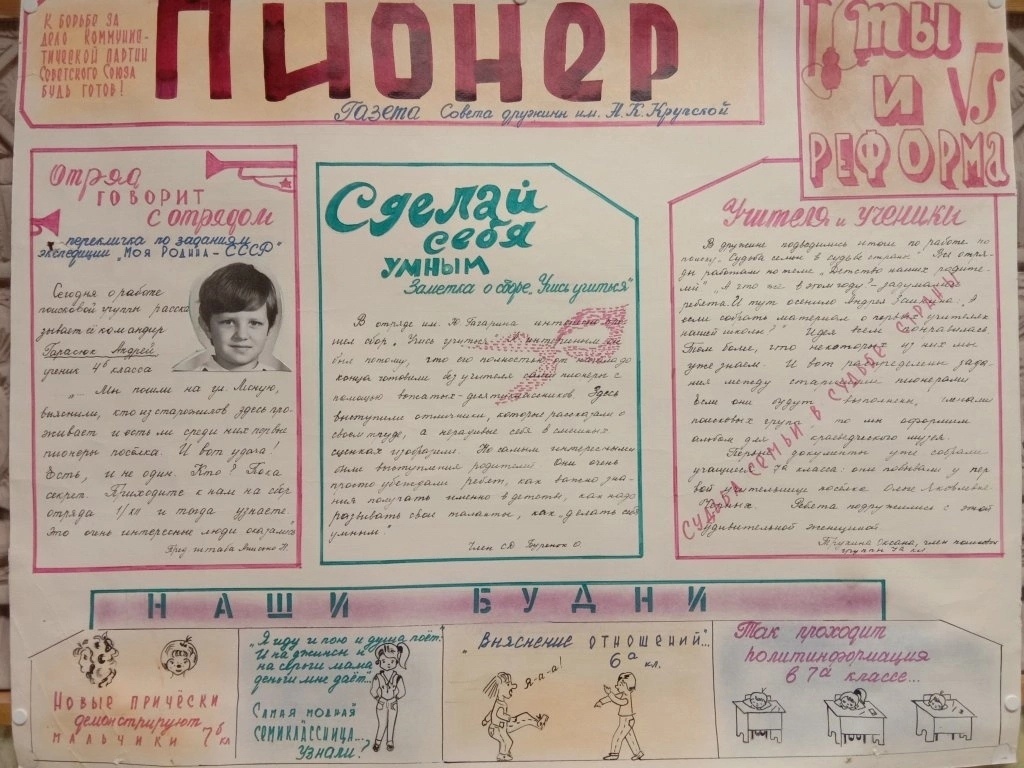 К борьбе за
дело Коммунис-
тической партии
Советского Союза
будь готов!
Пионер
Газета Совета дружины им. Н.К.Крупской
Ты
и
РЕФОРМА
Отряд
говорит
с отрядом
перекличка по заданиям
экспедиции „Моя Родина - СССР"
Сегодня о работе
поисковой группы расска
зывает её командир
Тарасюк Андрей,
ученик 4б класса
„- Мы пошли на ул. Лесную,
выяснили, кто из старожилов здесь про-
живает и есть ли среди них первые
пионеры посёлка. И вот удача!
Есть, и не один. Кто? Пока
секрет. Приходите к нам на сбор
отряда и тогда узнаете.
Это очень интересные люди оказались"
Пред. штаба
Сделай
себя
умным
Заметка о сборе „Учись учиться"
В отряде им. Ю. Гагарина интересно про-
шел сбор „Учись учиться". А интересным он
был потому, что его полностью от начала до
конца готовили без учителя сами пионеры с
помощью вожатых-девятиклассников. Здесь
выступили отличники, которые рассказали о
своем труде, а нерадивые себя в смешных
сценках изобразили. Но самым интересными
были выступления родителей. Они очень
просто убеждали ребят, как важно зна-
ния получать именно в детстве, как надо
развивать свои таланты, как „делать себя
умным".
Член СД Буренок О.
Учителя и ученики
В дружине подводились итоги по работе по
поиску „Судьба семьи в судьбе страны". Все отря-
ды работали по теме „Детство наших родите-
лей". „А что же в этом году?" - задумались
ребята. И тут осенило Андрея „А
если собрать материал о первых учителях
нашей школы?" Идея всем понравилась.
Тем более, что некоторых из них мы
уже знаем. И вот распределены зада-
ния между старшими пионерами
Если они будут выполнены, членами
поисковых групп, то мы оформим
альбом для краеведческого музея.
Первые документы уже собрали
учащиеся 7а класса: они побывали у пер
вой учительницы посёлка Ольги Яковлевны
Черных. Ребята подружились с этой
удивительной женщиной.
Оксана, член поисковой
группы 7а кл.
Судьба семьи - в судьбе страны
НАШИ БУДНИ
Новые причёски
демонстрируют
мальчики 7б кл
„Я иду и пою и душа поёт.
И на джинсы и
на серьги мама
деньги мне даёт..."
Самая модная
семиклассница...
Узнали?
„Выяснение отношений"...
6а кл.
Я-а-а!
Так проходит
политинформация
в 7а классе...